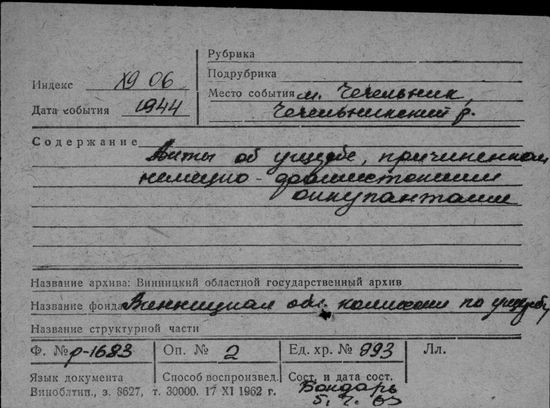 Рубрика
Подрубрика
Индекс XЯ 06
Место события м. Чечельник,
Дата события 1944
Чечельникский р.
Содержание Акты об ущербе, причиненном
немецко-фашистскими
оккупантами
Название архива: Винницкий областной государственный архив
Название фонда Винницкая обл. комиссия по ущербу
Название структурной части
Ф. № р-1683 Оп. № 2 Ед. хр. № 993 Лл.
Язык документа Способ воспроизвед. Сост. и дата сост.
Бондарь
Виноблтип., з. 8627, т. 30000. 17 XI 1962 г.